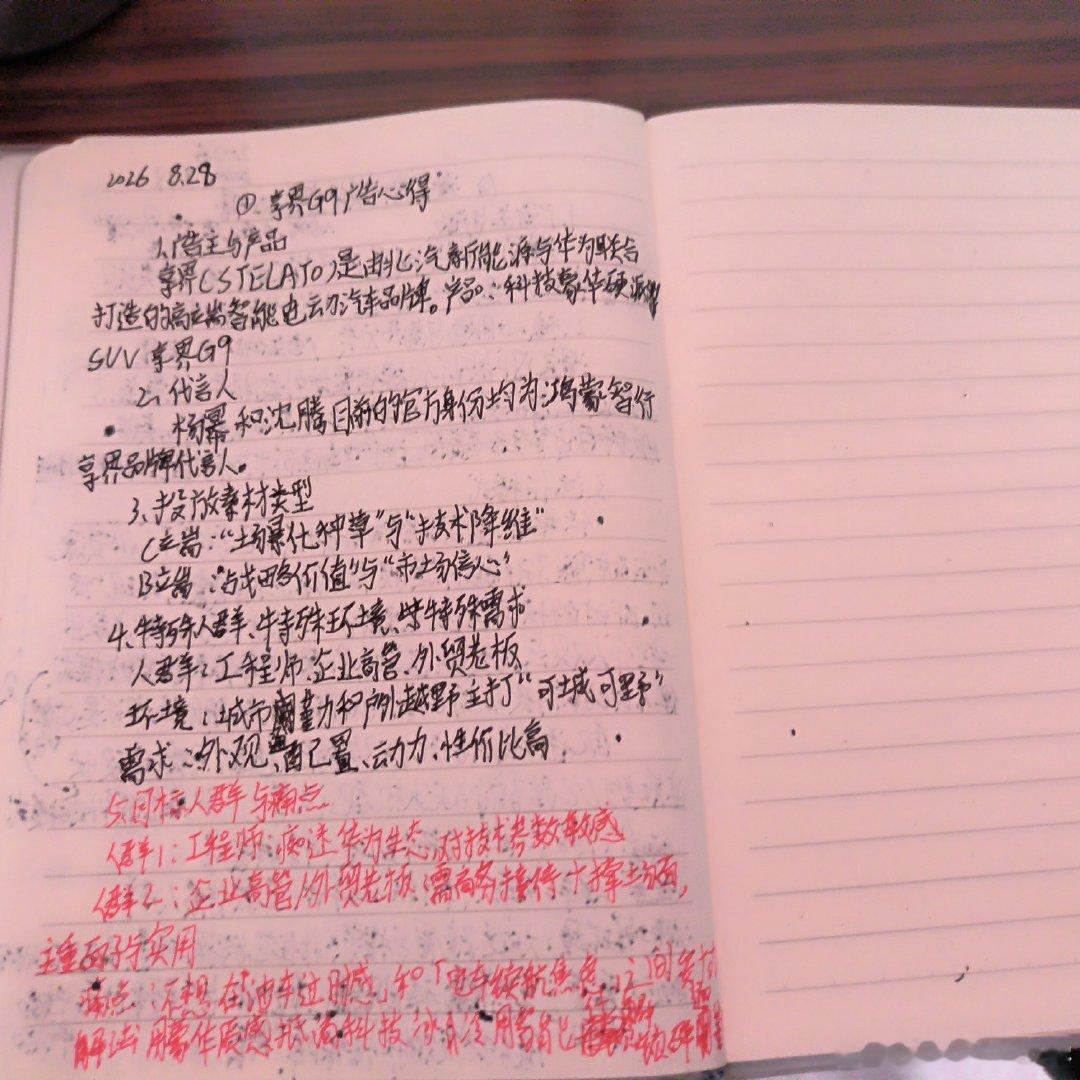 2026 8.28
① 享界G9广告心得
1.广告主与产品
享界(STELATO)是由北汽新能源与华为联合
打造的高端智能电动汽车品牌。产品：科技豪华硬派
SUV 享界G9
2、代言人
杨幂和沈腾目前的官方身份均为鸿蒙智行
享界品牌代言人。
3、投放素材类型
C端："场景化种草"与"技术降维"
B端："战略价值"与"市场信心"
4.特殊人群、特殊环境、特殊需求
人群：工程师、企业高管、外贸老板
环境：城市通勤和户外越野 主打"可城可野"
需求：外观、配置、动力、性价比高
5.目标人群与痛点
人群1：工程师：痴迷华为生态,对技术参数敏感
人群2：企业高管/外贸老板：需商务接待+撑场面，
注重面子与实用
痛点：不想在「油车过时感」和「电车续航焦虑」之间
解法 质感 科技 用